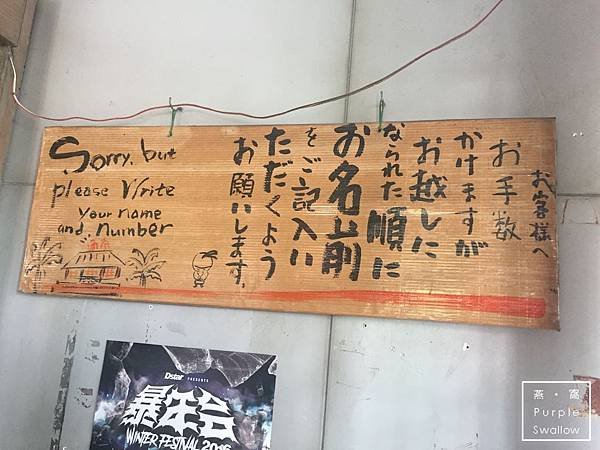 お客様へ
お手数
かけますが
お越しに
なられた順に
お名前
をご記入い
ただくよう
お願いします。
Sorry, but
please Write
Your name
and number
Dstar PRESENTS
暴年会
WINTER FESTIVAL 2016
燕・窩
Purple
Swallow